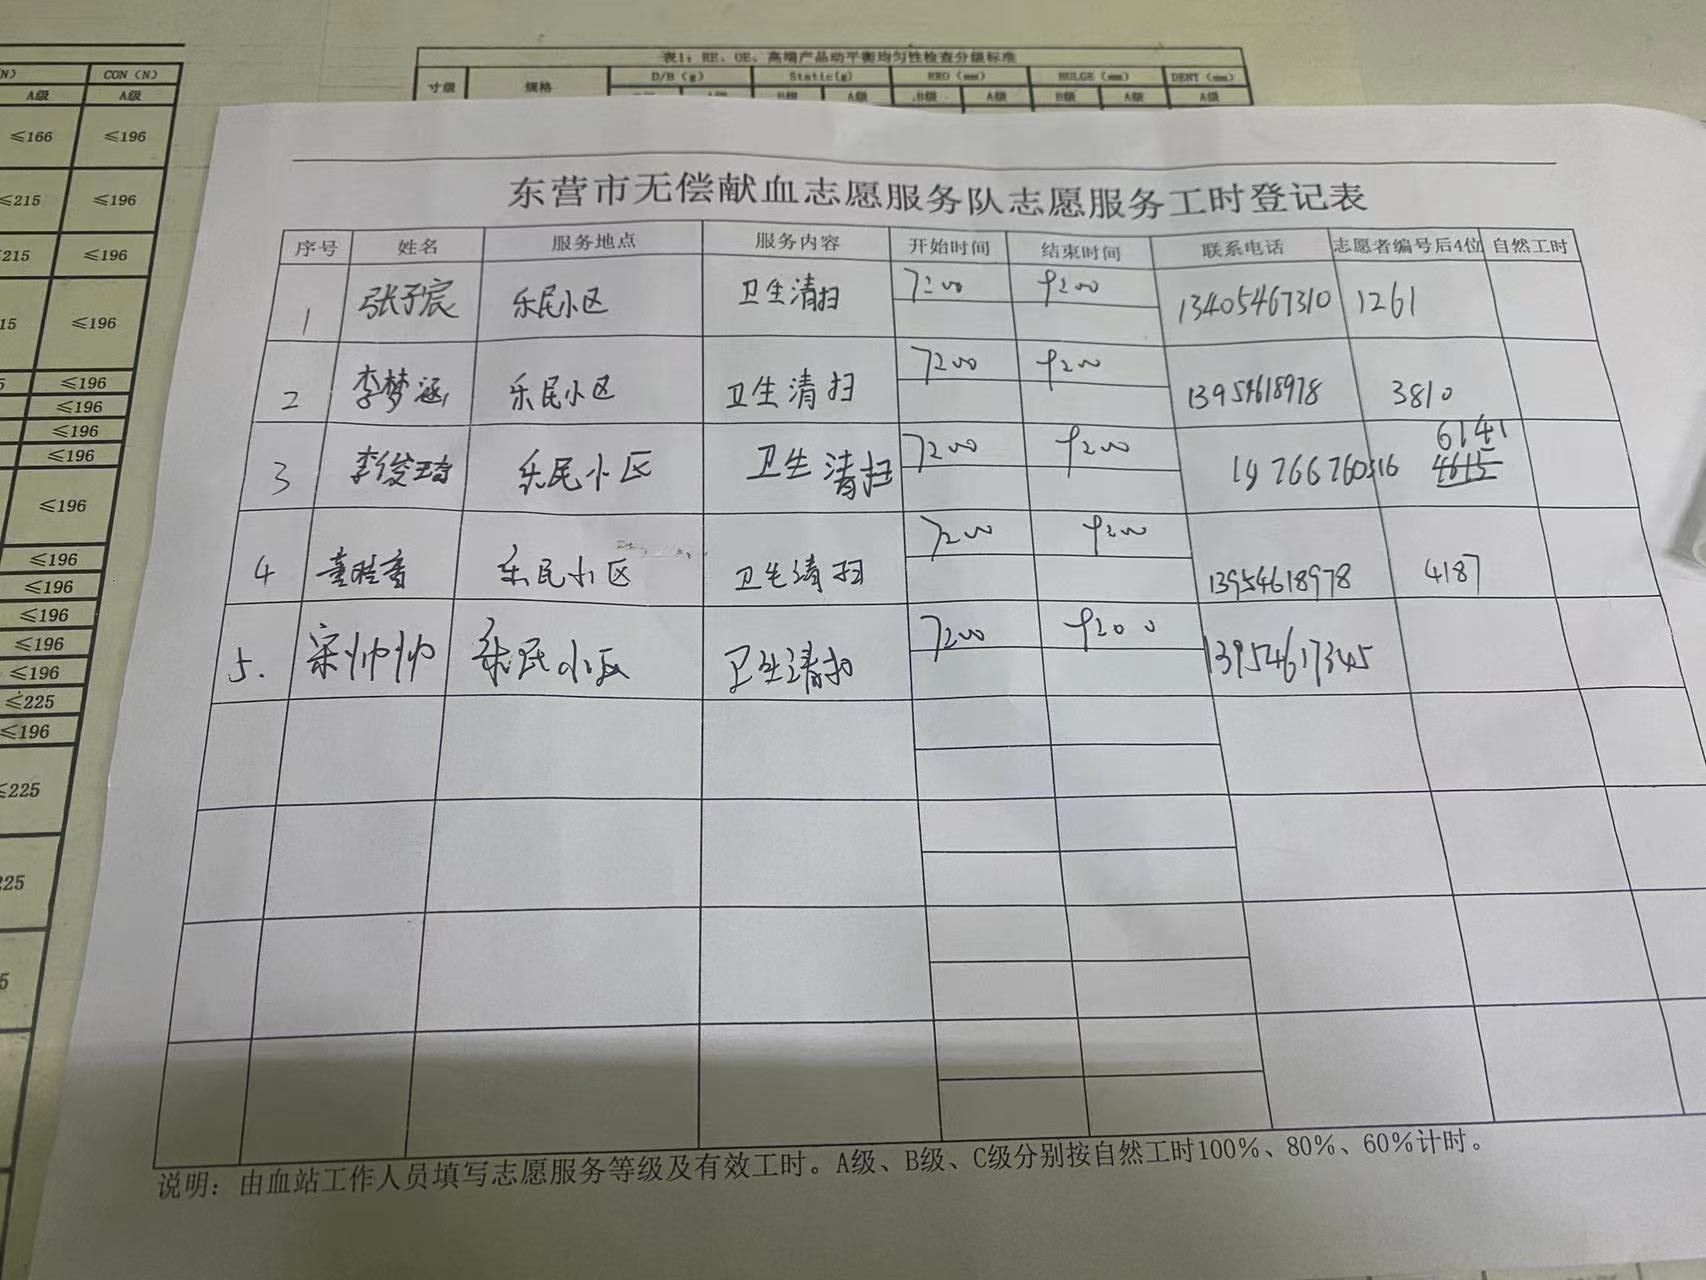 表1：RE、OE、高端产品动平衡均匀性检查分级标准
寸级 规格 D/B（g） Static(g) RRO（mm） BULGE（mm） DENT（mm）
B级 A级 B级 A级 B级 A级 A级
N） CON（N）
A级 A级
≤166 ≤196
≤215 ≤196
≤215 ≤196
≤196
≤196
≤196
≤196
≤196
≤196
≤196
≤196
≤196
≤196
≤196
≤225
≤196
≤225
东营市无偿献血志愿服务队志愿服务工时登记表
序号 姓名 服务地点 服务内容 开始时间 结束时间 联系电话 志愿者编号后4位 自然工时
1 张子宸 乐民小区 卫生清扫 7:00 9:00 13405467310 1261
2 李梦涵 乐民小区 卫生清扫 7:00 9:00 13954618978 3810
3 李俊琦 乐民小区 卫生清扫 7:00 9:00 6141
4 乐民小区 卫生清扫 7:00 9:00 13954618978 4187
5. 宋帅帅 乐民小区 卫生清扫 7:00 9:00 13954617345
说明：由血站工作人员填写志愿服务等级及有效工时。A级、B级、C级分别按自然工时100%、80%、60%计时。